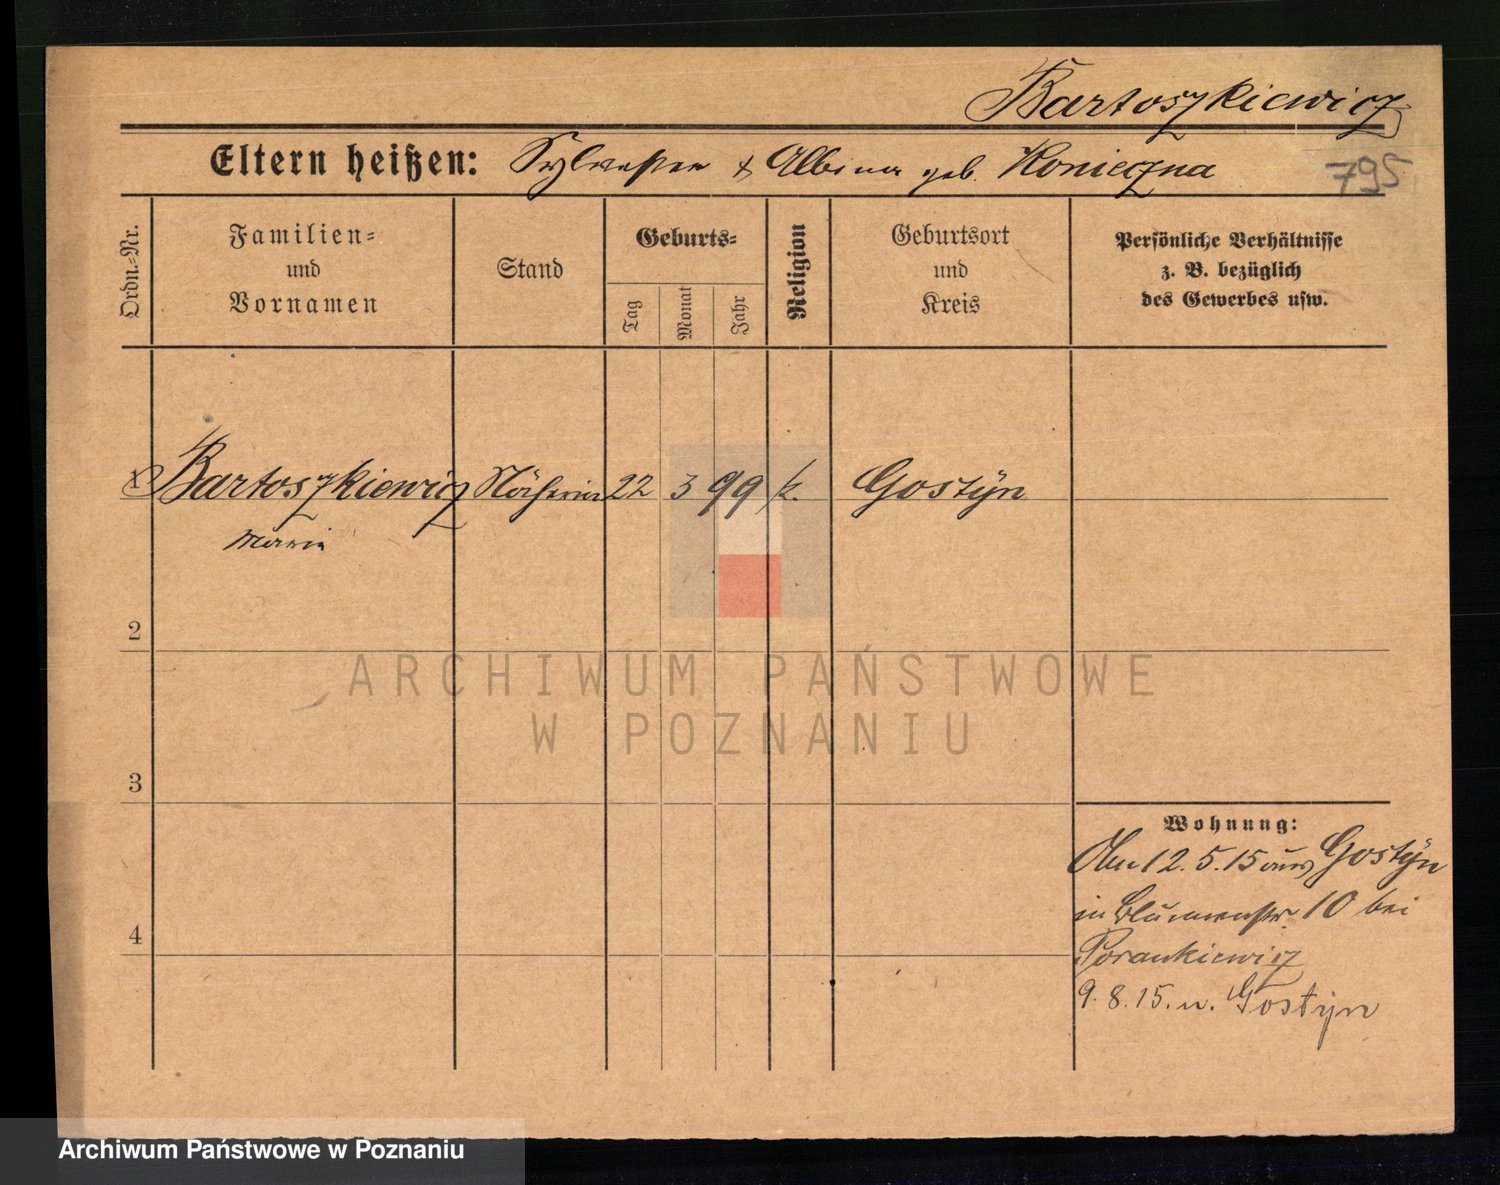 Bartoszkiewicz
Eltern heißen: Sylvester & Albina geb. Konieczna
795
Ordn.-Nr.
Familien-
und
Vornamen
Stand
Geburts-
Tag
Monat
Jahr
Religion
Geburtsort
und
Kreis
Persönliche Verhältnisse
z. B. bezüglich
des Gewerbes usw.
1 Bartoszkiewicz Näherin 22 3 99 k. Gostÿn
Maria
2
3
4
Wohnung:
Am 12. 5. 15 aus Gostÿn
in Blumenstr. 10 bei
Porankiewicz
9. 8. 15. n. Gostyn
ARCHIWUM PAŃSTWOWE
W POZNANIU
Archiwum Państwowe w Poznaniu